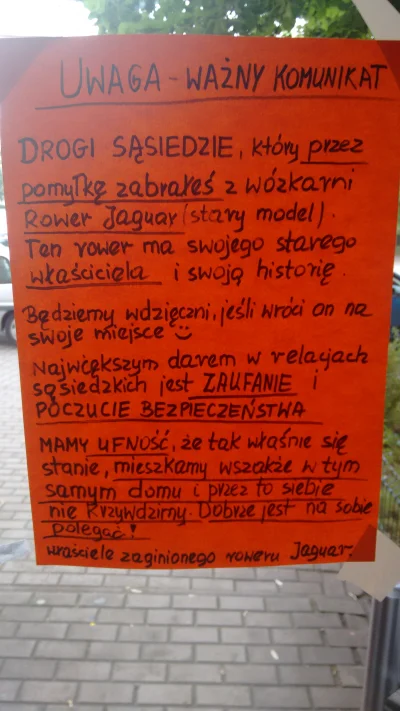 UWAGA - WAŻNY KOMUNIKAT
DROGI SĄSIEDZIE, który przez
pomyłkę zabrałeś z wózkarni
Rower Jaguar (stary model).
Ten rower ma swojego starego
właściciela i swoją historię.
Będziemy wdzięczni, jeśli wróci on na
swoje miejsce
Największym darem w relacjach
sąsiedzkich jest ZAUFANIE i
POCZUCIE BEZPIECZEŃSTWA
MAMY UFNOŚĆ, że tak właśnie się
stanie, mieszkamy wszakże w tym
samym domu i przez to siebie
nie krzywdzimy. Dobrze jest na sobie
polegać!
właściele zaginionego roweru Jaguar.